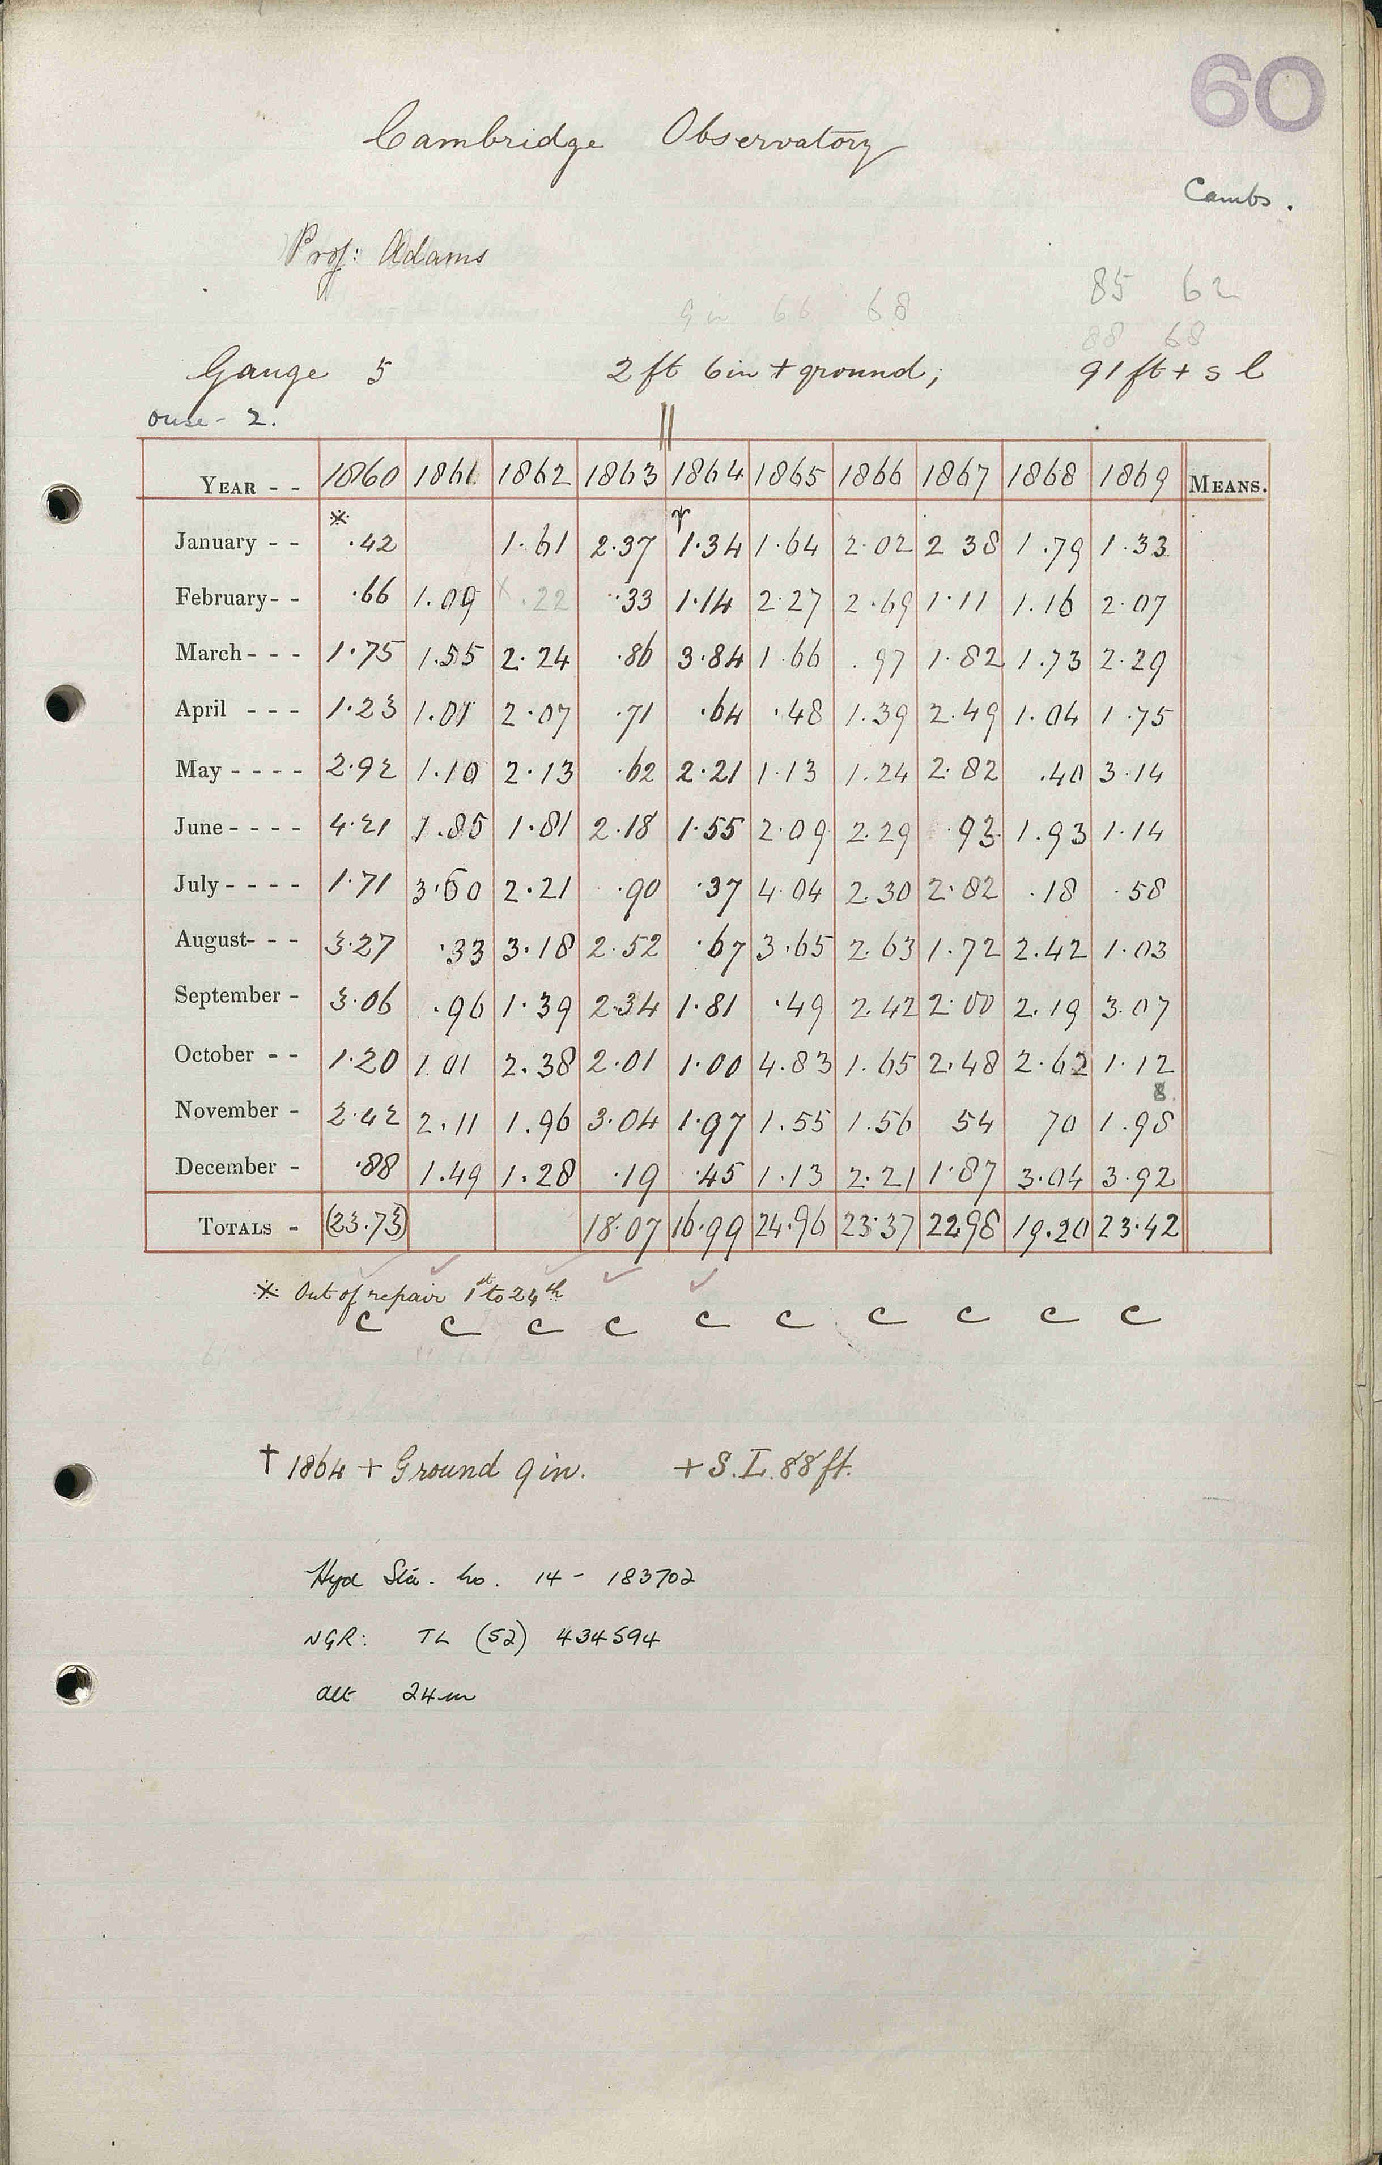 60
Cambridge Observatory
Cambs.
Prof: Adams
85 62
9 in 66 68
88 68
Gauge 5 2 ft 6 in + ground; 91 ft + s l
Ouse - 2.
YEAR - - 1860 1861 1862 1863 1864 1865 1866 1867 1868 1869 MEANS.
January - - ※ .42 1.61 2.37 † 1.34 1.64 2.02 2 38 1.79 1.33
February - - .66 1.09 x .22 .33 1.14 2.27 2.69 1.11 1.16 2.07
March - - - 1.75 1.55 2.24 .86 3.84 1.66 .97 1.82 1.73 2.29
April - - - 1.23 1.01 2.07 .71 .64 .48 1.39 2.49 1.04 1.75
May - - - - 2.92 1.10 2.13 .62 2.21 1.13 1.24 2.82 .40 3.14
June - - - - 4.21 1.85 1.81 2.18 1.55 2.09 2.29 .93 1.93 1.14
July - - - - 1.71 3.60 2.21 .90 .37 4.04 2.30 2.82 .18 .58
August - - - 3.27 .33 3.18 2.52 .67 3.65 2.63 1.72 2.42 1.03
September - 3.06 .96 1.39 2.34 1.81 .49 2.42 2.00 2.19 3.07
October - - 1.20 1.01 2.38 2.01 1.00 4.83 1.65 2.48 2.62 1.12
8
November - 2.42 2.11 1.96 3.04 1.97 1.55 1.56 54 70 1.98
December - .88 1.49 1.28 .19 .45 1.13 2.21 1.87 3.04 3.92
TOTALS - (23.73) 18.07 16.99 24.96 23.37 22.98 19.20 23.42
※ Out of repair 1st to 24th
c c c c c c c c c c
† 1864 + Ground 9 in. + S. L. 88 ft.
Hyd Sta. no. 14 - 183702
NGR: TL (52) 434594
alt 24m